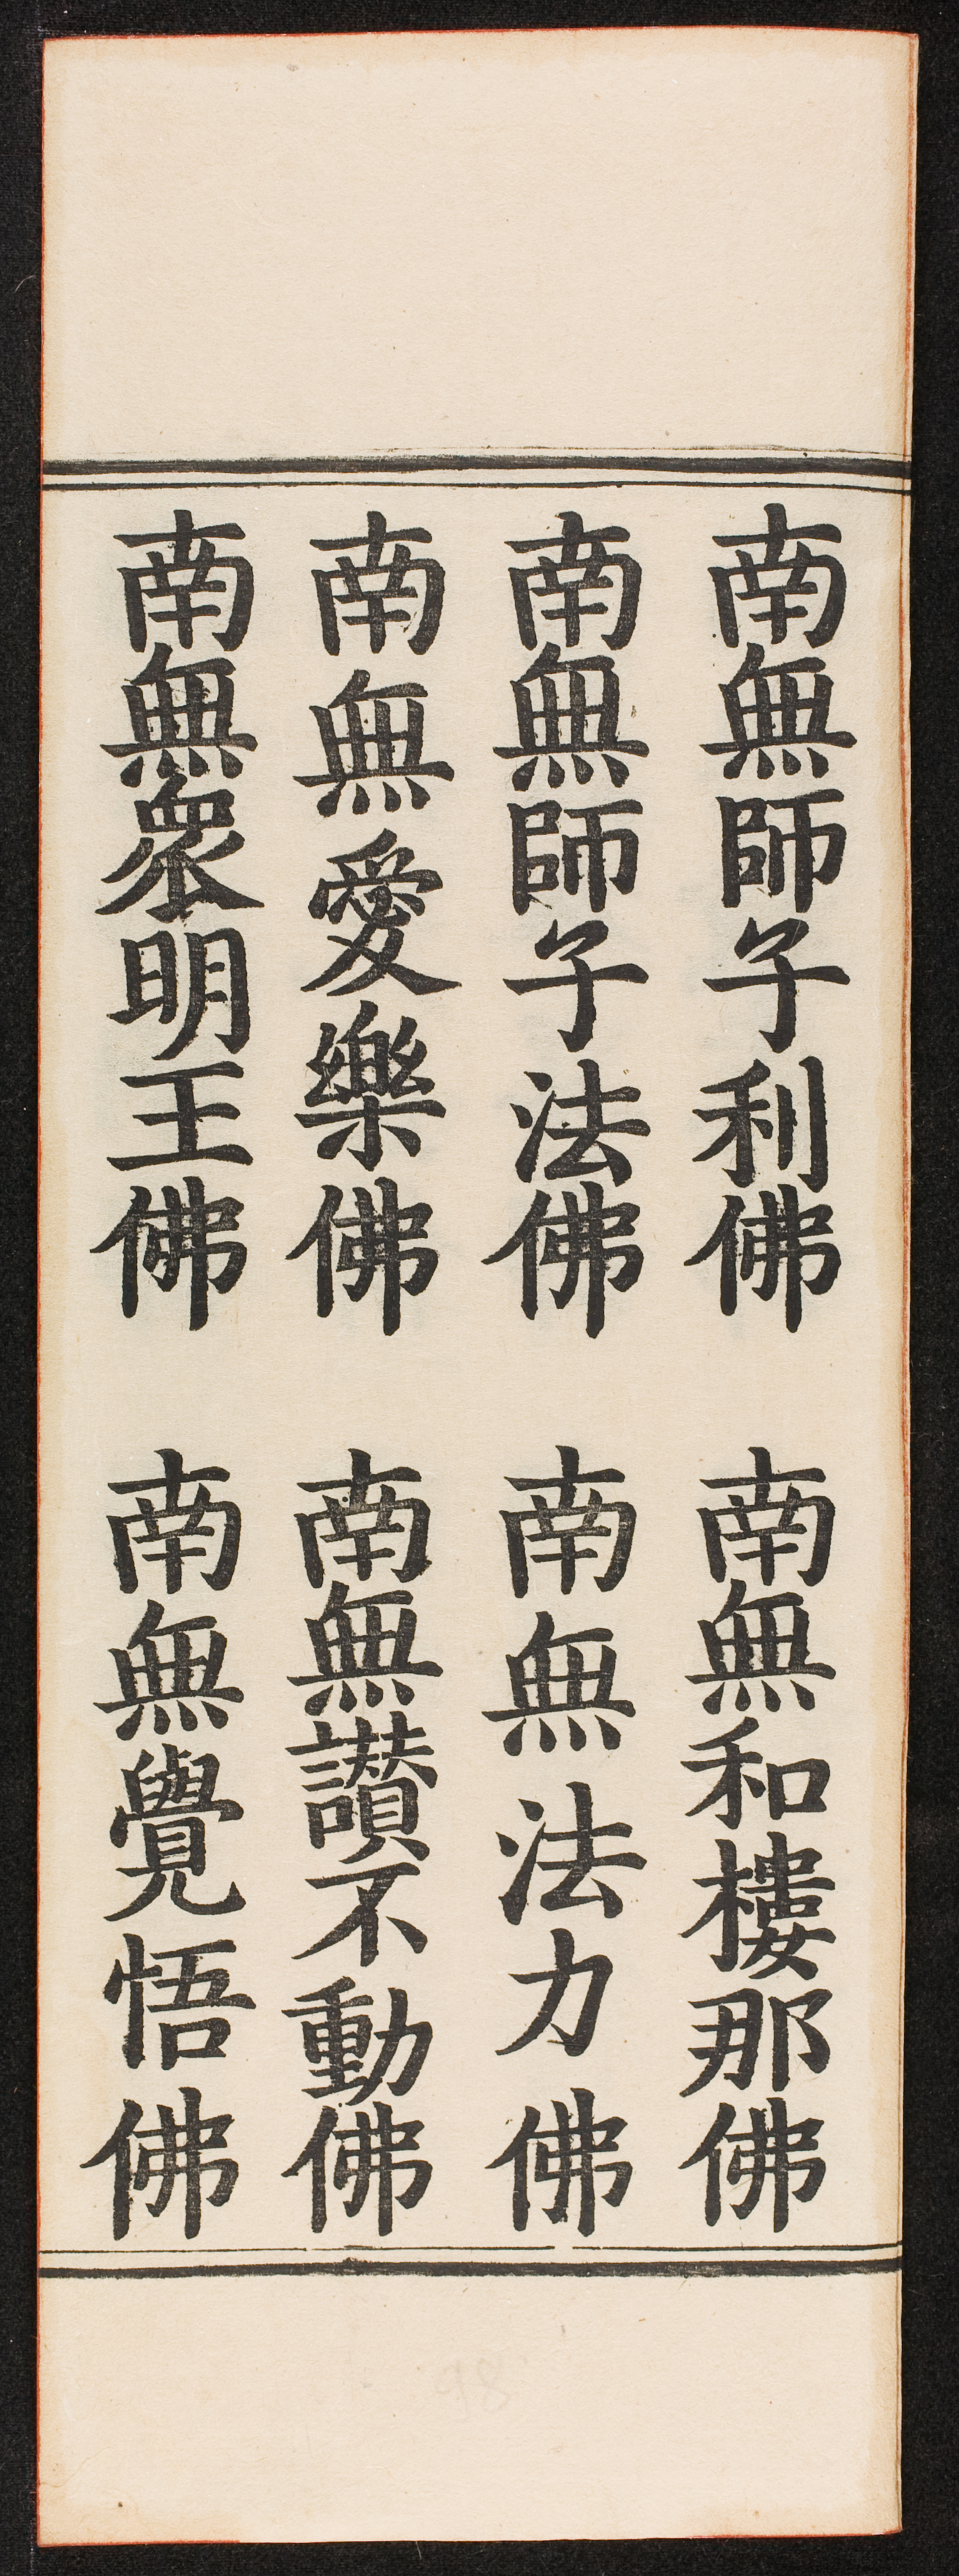 南無師子利佛 南無和樓那佛
南無師子法佛 南無法力佛
南無愛樂佛 南無讃不動佛
南無衆明王佛 南無覺悟佛